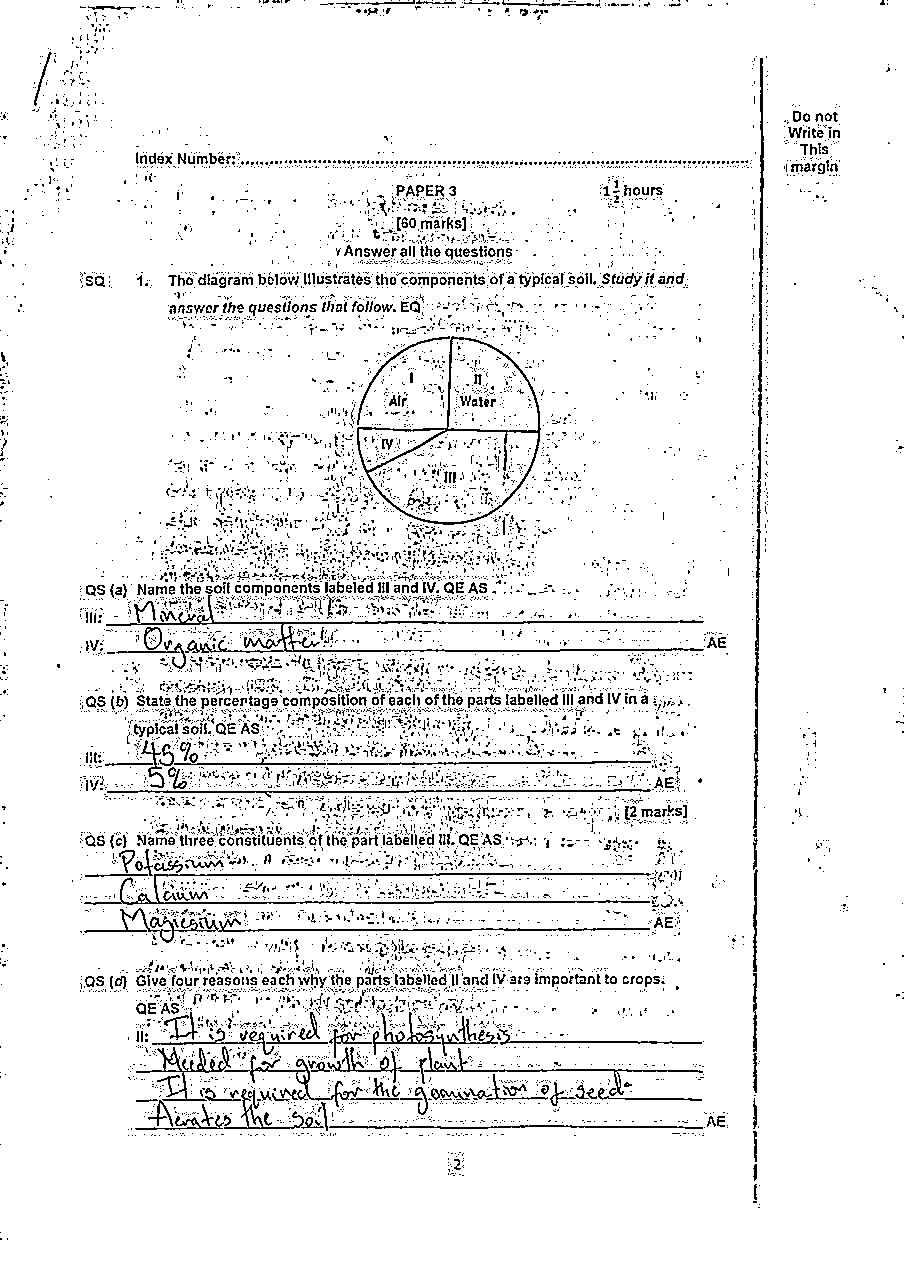 Do not
Write in
This
margin
Index Number:
PAPER 3
1 1/2 hours
[60 marks]
Answer all the questions
SQ 1. The diagram below illustrates the components of a typical soil. Study it and
answer the questions that follow. EQ
I
Air
II
Water
IV
III
QS (a) Name the soil components labeled III and IV. QE AS
III: Mineral
IV: Organic matter AE
QS (b) State the percentage composition of each of the parts labelled III and IV in a
typical soil. QE AS
III: 45%
IV: 5% AE
[2 marks]
QS (c) Name three constituents of the part labelled III. QE AS
Potassium
Calcium
Magnesium AE
QS (d) Give four reasons each why the parts labelled II and IV are important to crops.
QE AS
II: It is required for photosynthesis
Needed for growth of plant
It is required for the germination of seed
Aerates the soil AE
2